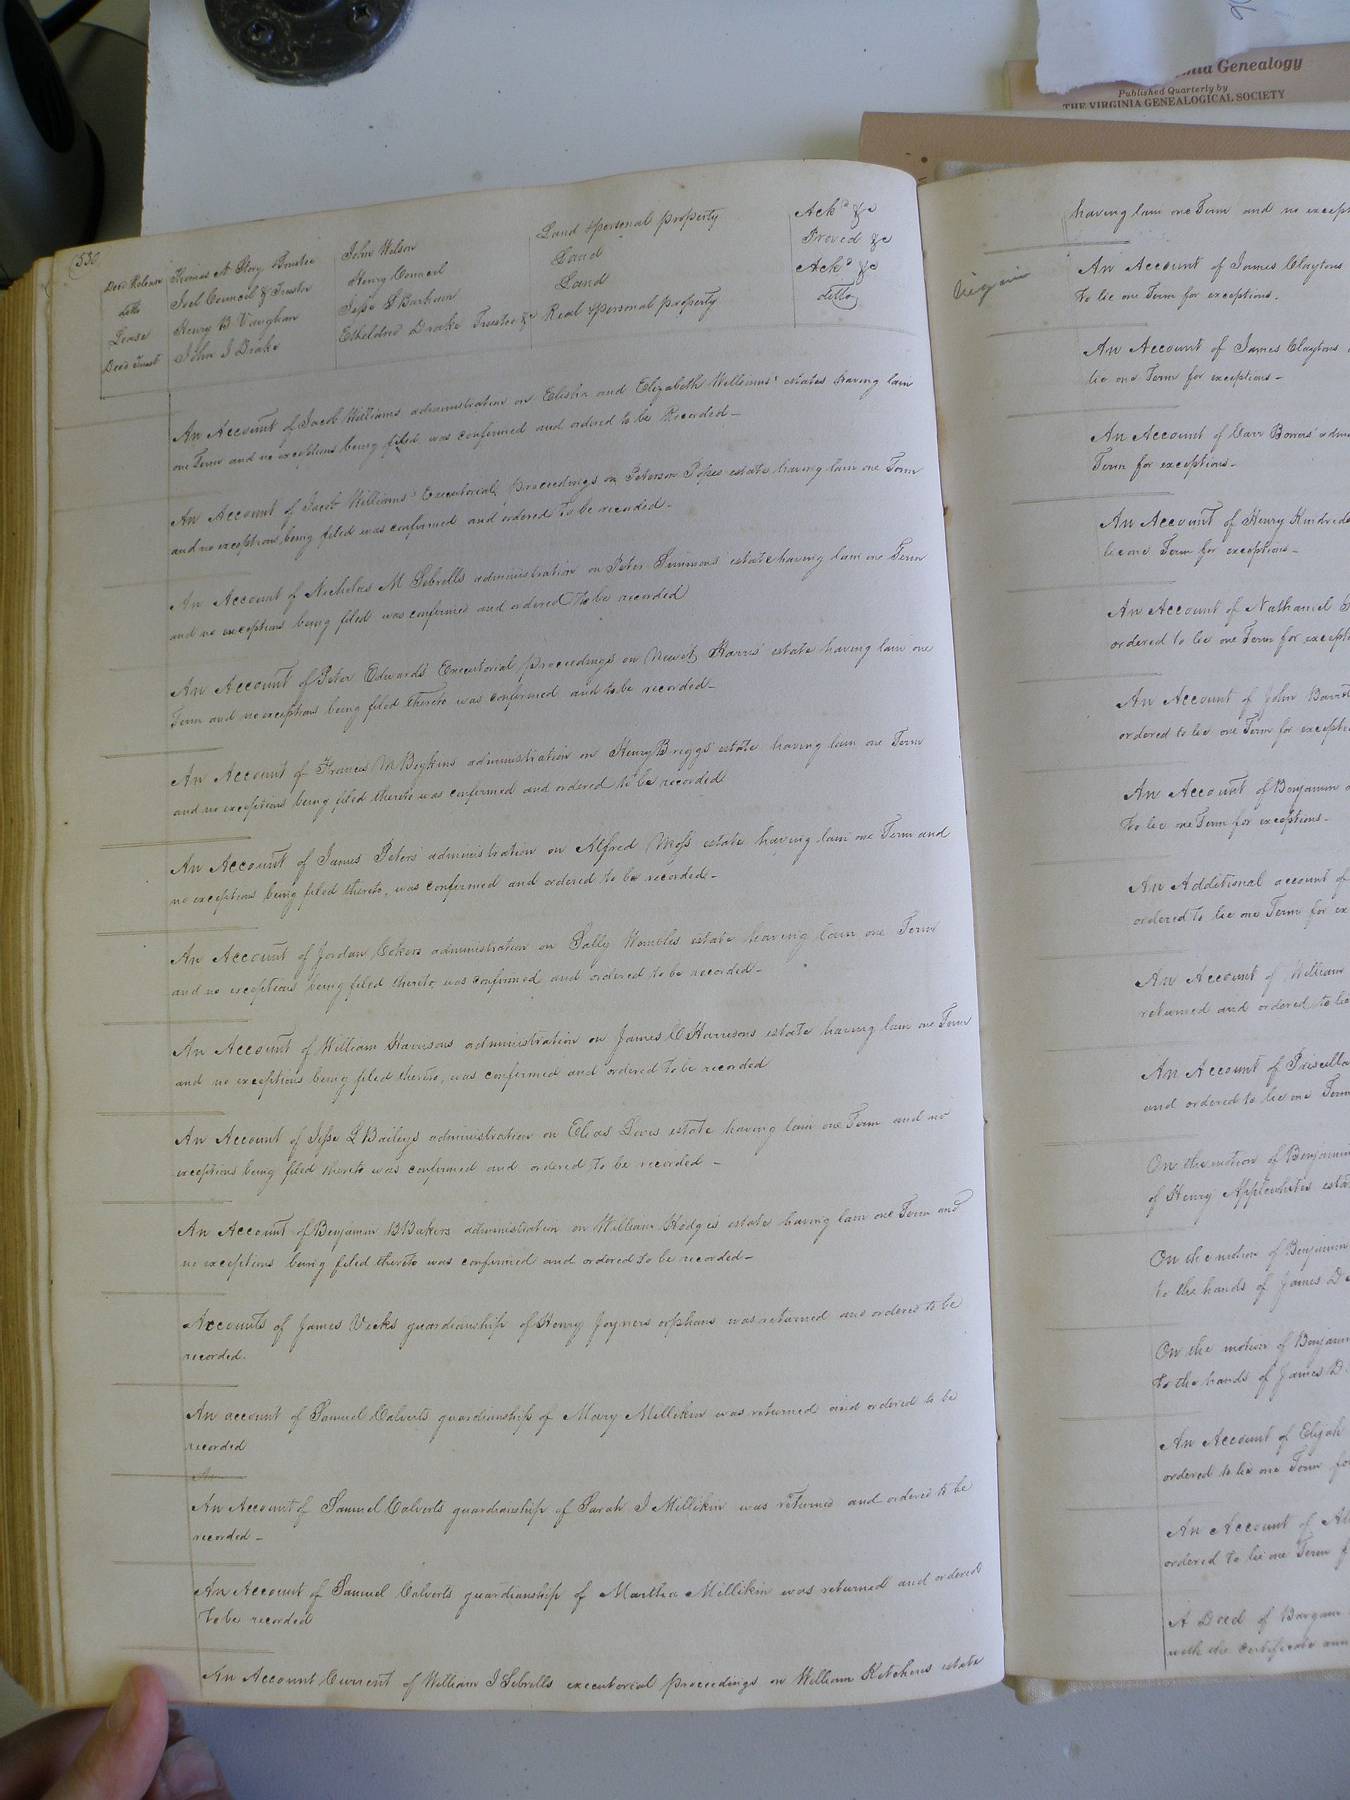 Genealogy
Published Quarterly by
THE VIRGINIA GENEALOGICAL SOCIETY
530
Deed Release Thomas A Story Trustee John Wilson Land & personal property Ackd &c
ditto Joel Council & Trustee Henry Council Land Proved &c
Lease Henry B Vaughan Jesse S Barham Land Ackd &c
Deed Trust John J Drake Etheldred Drake Trustee &c Real & personal property ditto
An Account of Jacob Williams administration on Elisha and Elizabeth Williams' estates having lain
one Term and no exceptions being filed was confirmed and ordered to be Recorded –
An Account of Jacob Williams' Executorial proceedings on Peterson Popes estate having lain one Term
and no exceptions being filed was confirmed and ordered to be recorded –
An Account of Nicholas M Sebrells administration on Peter Simmons estate having lain one Term
and no exceptions being filed was confirmed and ordered to be recorded
An Account of Peter Edwards' Executorial proceedings on Harris' estate having lain one
Term and no exceptions being filed thereto was confirmed and to be recorded –
An Account of Francis M Boykins administration on Henry Briggs' estate having lain one Term
and no exceptions being filed thereto was confirmed and ordered to be recorded
An Account of James Peters' administration on Alfred Moss estate having lain one Term and
no exceptions being filed thereto, was confirmed and ordered to be recorded –
An Account of Jordan administration on Sally Wombles estate having lain one Term
and no exceptions being filed thereto was confirmed and ordered to be recorded –
An Account of William Harrisons administration on James C Harrisons estate having lain one Term
and no exceptions being filed thereto, was confirmed and ordered to be recorded
An Account of Jesse L Baileys administration on Elias estate having lain one Term and no
exceptions being filed thereto was confirmed and ordered to be recorded –
An Account of Benjamin B Bakers administration on William Hodges estate having lain one Term and
no exceptions being filed thereto was confirmed and ordered to be recorded –
Accounts of James Vicks guardianship of Henry Joyners orphans was returned and ordered to be
recorded.
An account of Samuel Calverts guardianship of Mary Millikin was returned and ordered to be
recorded
An
An Account of Samuel Calverts guardianship of Sarah J Millikin was returned and ordered to be
recorded –
An Account of Samuel Calverts guardianship of Martha Millikin was returned and ordered
to be recorded
An Account Current of William J Sebrells executorial proceedings on William Kitchens estate
having lain one Term and no except
An Account of James Claytons
to lie one Term for exceptions.
An Account of James Claytons
lie one Term for exceptions –
An Account of Carr Bowers' adm
Term for exceptions –
An Account of Henry Kindred
lie one Term for exceptions –
An Account of Nathaniel
ordered to lie one Term for except
An Account of John Barrett
ordered to lie one Term for excepti
An Account of Benjamin
to lie one Term for exceptions –
An Additional account of
ordered to lie one Term for ex
An Account of William
returned and ordered to lie
An Account of Priscilla
and ordered to lie one Term
On the motion of Benjamin
of Henry Applewhites esta
On the motion of Benjamin
to the hands of James D
On the motion of Benjamin
to the hands of James D
An Account of Elijah
ordered to lie one Term for
An Account of
ordered to lie one Term f
A Deed of Bargain
with the certificate